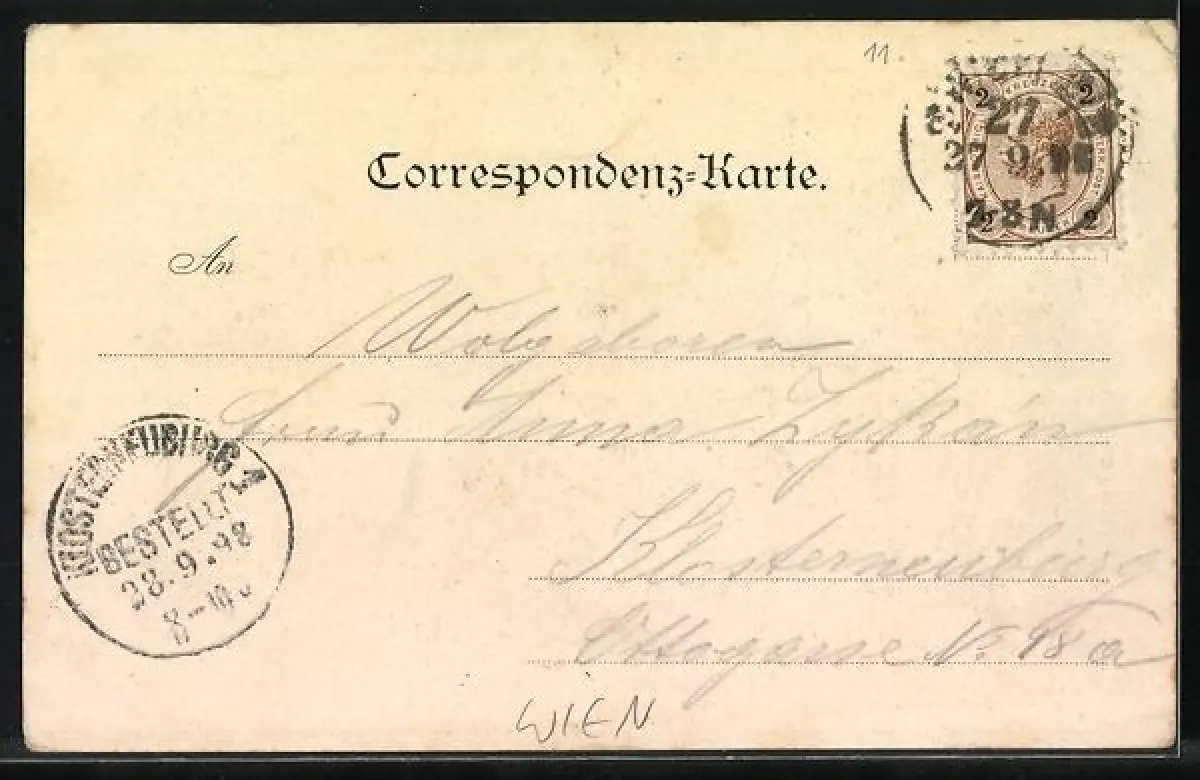 11.
2 2
27
27 9 98
7-8N
2 2
Correspondenz-Karte.
An
Wolgeboren
Frau Anna Zykán
Klosterneuburg
Ottogasse No 18a
KLOSTERNEUBURG 1
BESTELLT
28.9.98
8-
WIEN